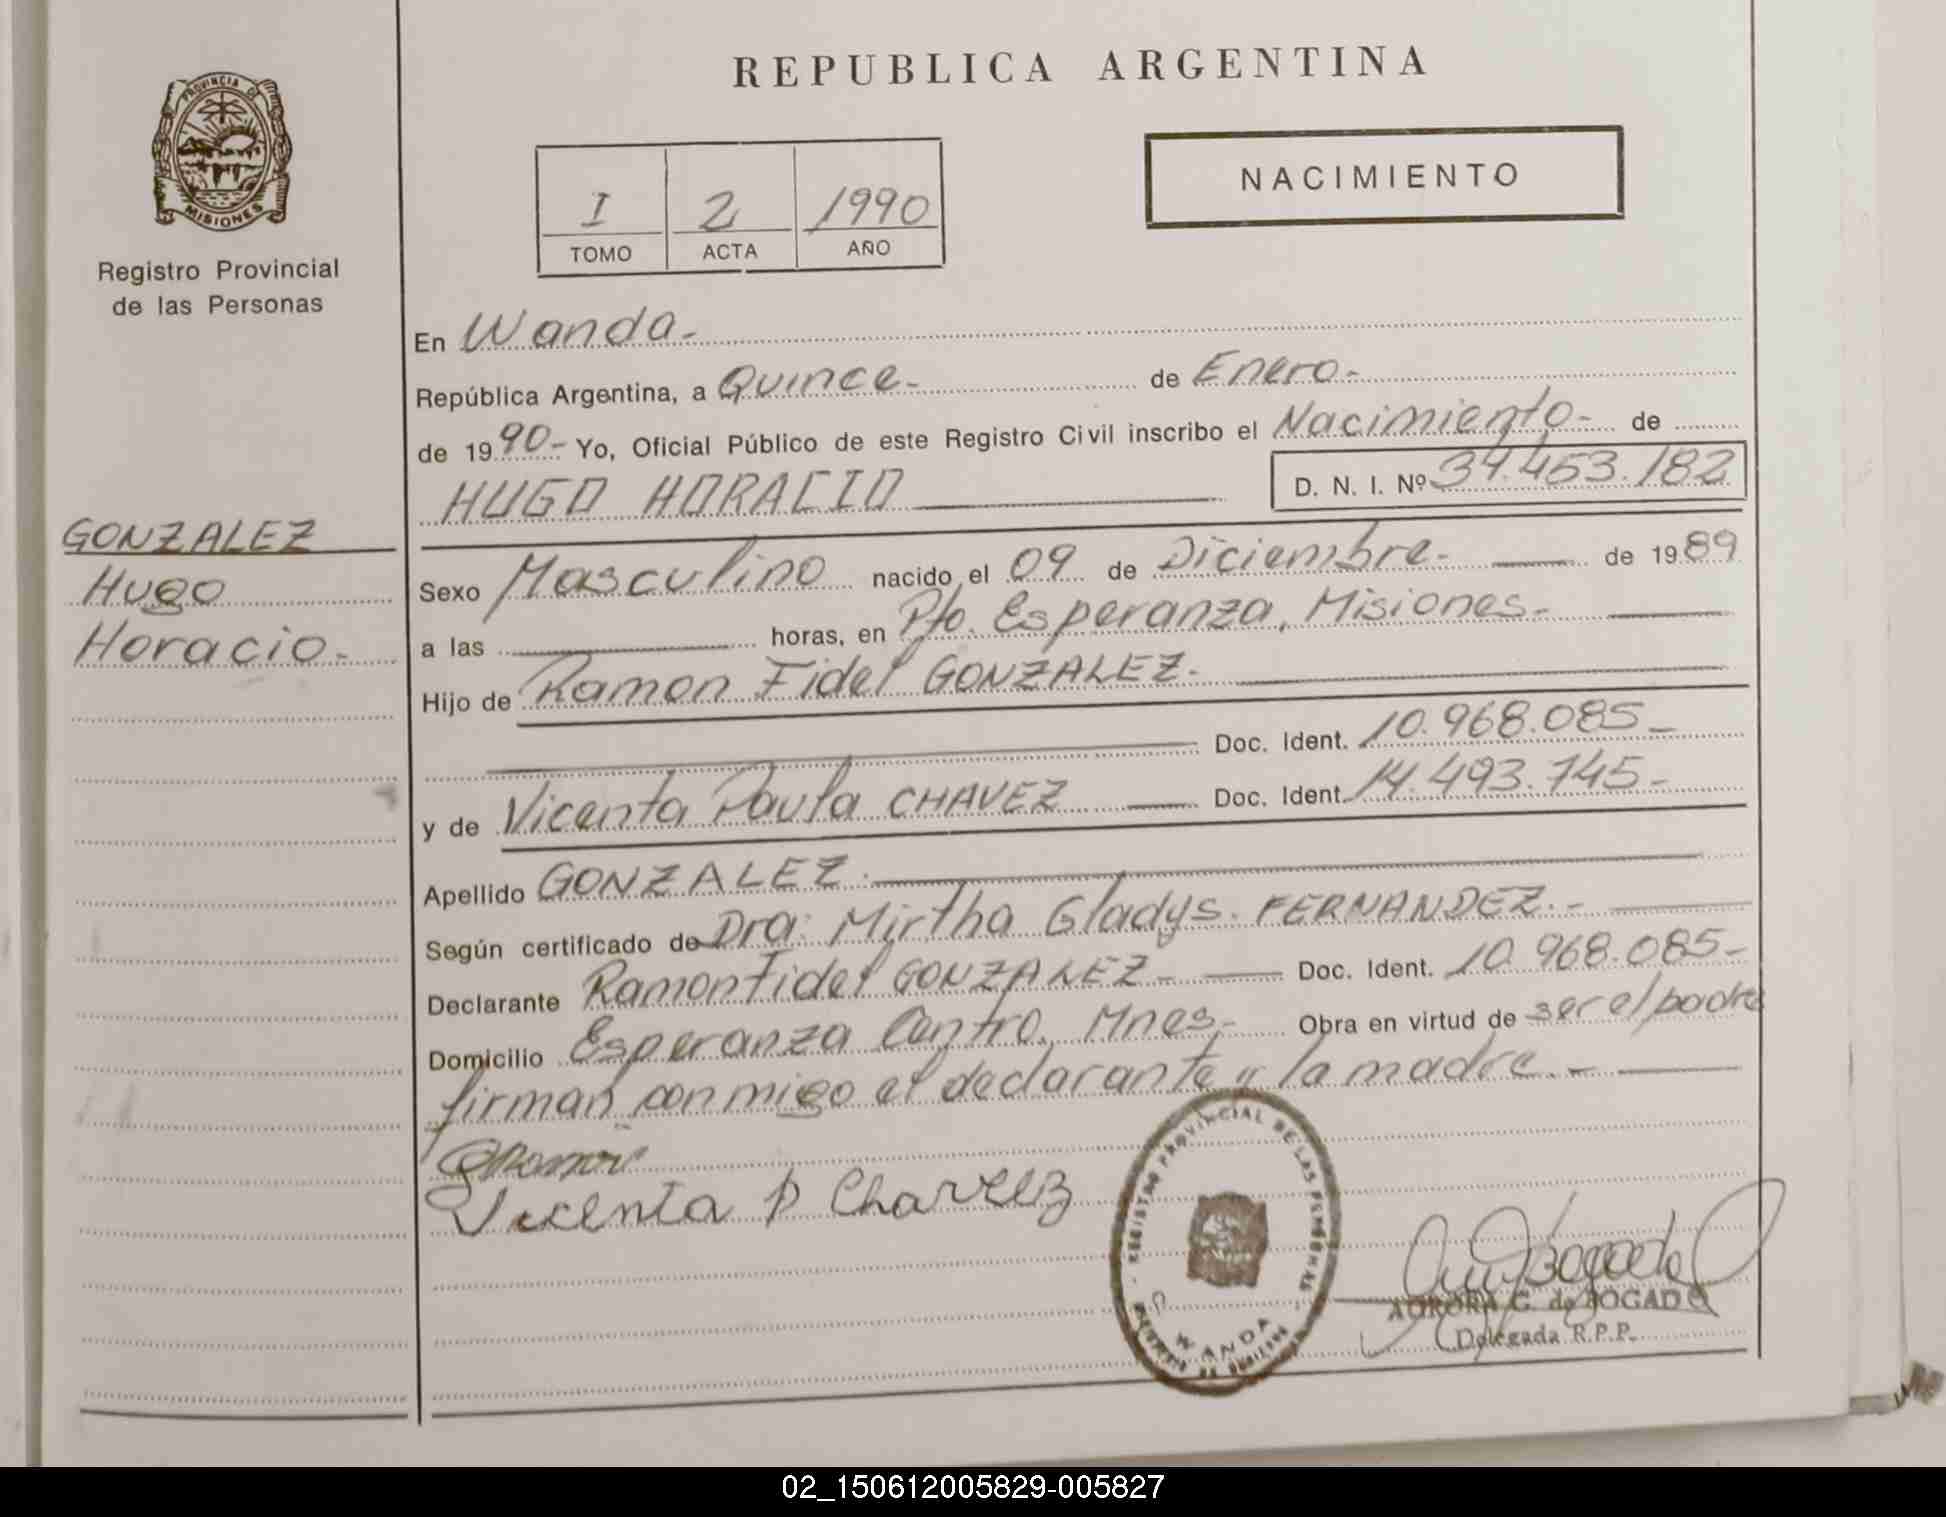 REPUBLICA ARGENTINA
PROVINCIA DE
MISIONES
Registro Provincial
de las Personas
I 2 1990
TOMO ACTA AÑO
NACIMIENTO
En Wanda.-
República Argentina, a Quince.- de Enero.-
de 1990.- Yo, Oficial Público de este Registro Civil inscribo el Nacimiento.- de
HUGO HORACIO D. N. I. Nº 34.453.182
GONZALEZ
Hugo
Horacio.-
Sexo Masculino nacido el 09 de Diciembre.- de 1989
a las horas, en Pto. Esperanza, Misiones.-
Hijo de Ramon Fidel GONZALEZ.-
Doc. Ident. 10.968.085.-
y de Vicenta Paula CHAVEZ Doc. Ident. 14.493.745.-
Apellido GONZALEZ.
Según certificado de Dra. Mirtha Gladys. FERNANDEZ.-
Declarante Ramon Fidel GONZALEZ.- Doc. Ident. 10.968.085.-
Domicilio Esperanza Centro, Mnes.- Obra en virtud de ser el padre
firman conmigo el declarante y la madre.-
Vicenta P Chavez
REGISTRO PROVINCIAL DE LAS PERSONAS
WANDA
AURORA G. de BOGADO
Delegada R.P.P.
02_150612005829-005827